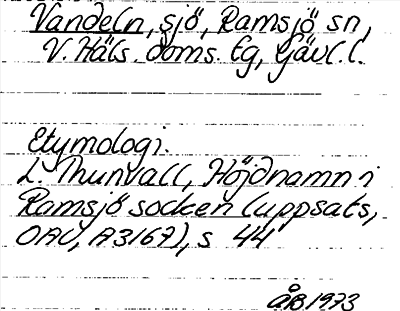 Vandeln, sjö, Ramsjö sn,
V. Häls. doms. lg, Gävl. l.
Etymologi.
L. Thunvall, Höjdnamn i
Ramsjö socken (uppsats,
OAU, A3167), s 44
ÅB 1973